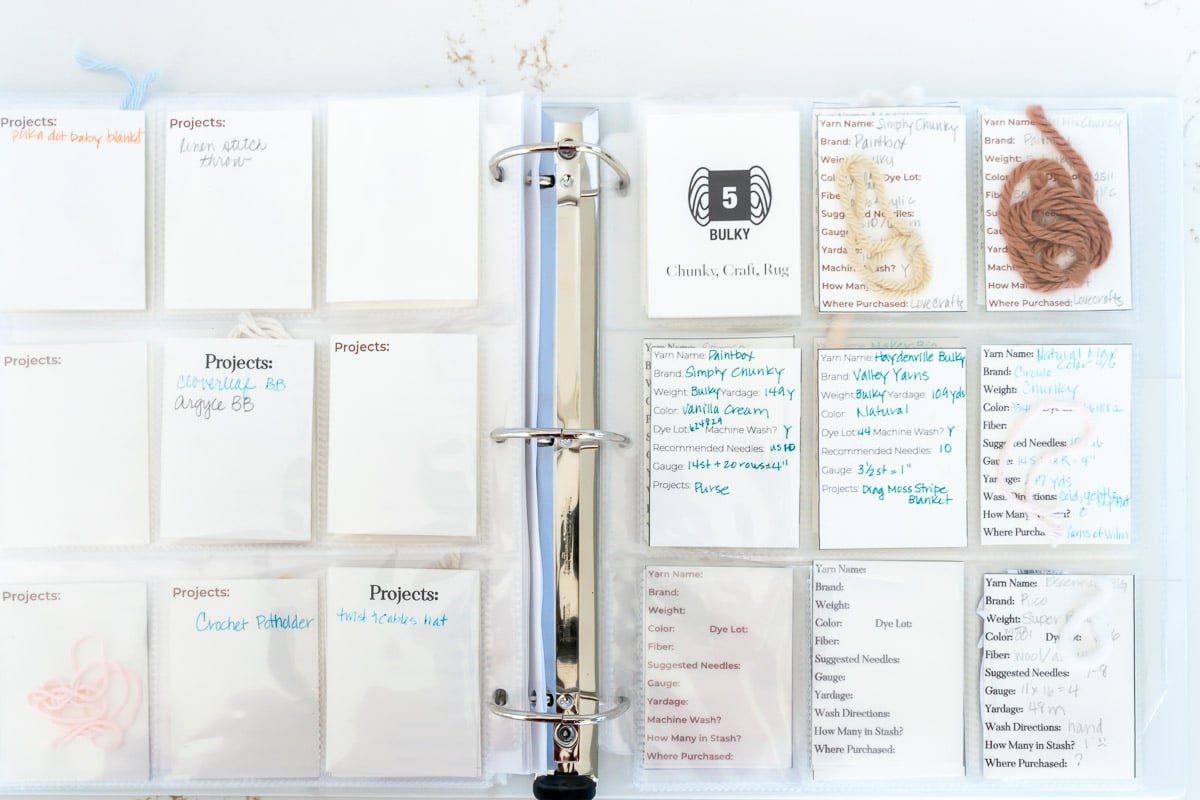 Projects:
polka dot baby blanket
Projects:
linen stitch
throw
Projects:
Projects:
Cloverleaf BB
Argyle BB
Projects:
Projects:
Projects:
Crochet Potholder
Projects:
twist & cables hat
5
BULKY
Chunky, Craft, Rug
Yarn Name: Simply Chunky
Brand: Paintbox
Dye Lot:
Machine Wash? Y
How Many
Where Purchased: Lovecrafts
Yarn Name: Chunky
Brand:
Weight:
How Many
Where Purchased: Lovecrafts
Yarn Name: Paintbox
Brand: Simply Chunky
Weight: Bulky Yardage: 149y
Color: Vanilla Cream
Dye Lot: 624829 Machine Wash? Y
Recommended Needles: US 10
Gauge: 14st + 20 rows = 4"
Projects: Purse
Yarn Name: Haydenville Bulky
Brand: Valley Yarns
Weight: Bulky Yardage: 109yds
Color: Natural
Dye Lot: 44 Machine Wash? Y
Recommended Needles: 10
Gauge: 3½ st = 1"
Projects: Diag Moss Stripe
Blanket
Yarn Name: Natural Max
Color 4/6
Brand: Circulo
Weight: Chunky
Color:
Fiber:
Suggested Needles:
Gauge: = 4"
Yardage: yds
Wash Directions: cold, gentle,
How Many
Where
Yarn Name:
Brand:
Weight:
Color: Dye Lot:
Fiber:
Suggested Needles:
Gauge:
Yardage:
Machine Wash?
How Many in Stash?
Where Purchased:
Yarn Name:
Brand:
Weight:
Color: Dye Lot:
Fiber:
Suggested Needles:
Gauge:
Yardage:
Wash Directions:
How Many in Stash?
Where Purchased:
Yarn Name:
Brand: Rico
Weight: Super
Color:
Fiber: wool/
Suggested Needles:
Gauge: 11 x 16 = 4
Yardage: 48m
Wash Directions: hand
How Many in Stash? 1
Where Purchased: ?